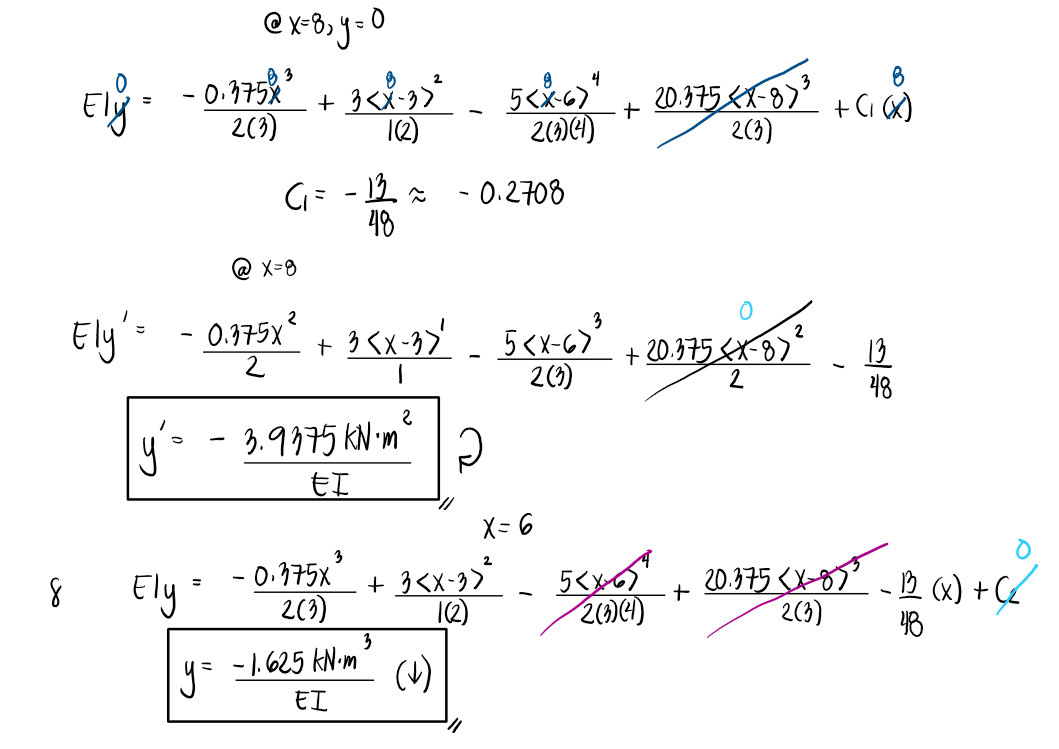 @ x=8, y=0
EIy 0 = - 0.375x 8 ³ / 2(3) + 3<x 8 -3>² / 1(2) - 5<x 8 -6>⁴ / 2(3)(4) + 20.375<x-8>³ / 2(3) + C₁ (x) 8
C₁ = - 13/48 ≈ - 0.2708
@ x=8
EIy' = - 0.375x² / 2 + 3<x-3>¹ / 1 - 5<x-6>³ / 2(3) + 20.375<x-8>² / 2 0 - 13/48
y' = - 3.9375 kN·m² / EI
x=6
8 EIy = -0.375x³ / 2(3) + 3<x-3>² / 1(2) - 5<x-6>⁴ / 2(3)(4) + 20.375<x-8>³ / 2(3) - 13/48 (x) + C₂ 0
y = -1.625 kN·m³ / EI (↓)